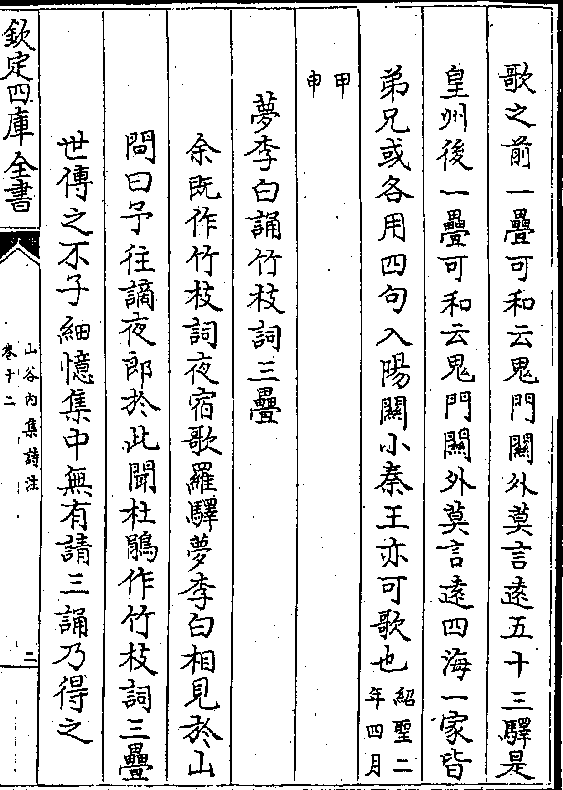 歌之前一疊可和云鬼門關外莫言遠五十三驛是
皇州後一疊可和云鬼門關外莫言遠四海一家皆
弟兄或各用四句入陽關小秦王亦可歌也紹聖二年四月
甲申
夢李白誦竹枝詞三疊
余既作竹枝詞夜宿歌羅驛夢李白相見於山
間曰予往謫夜郎於此聞杜鵑作竹枝詞三疊
世傳之不子細憶集中無有請三誦乃得之
欽定四庫全書
山谷內集詩注
卷十二
二